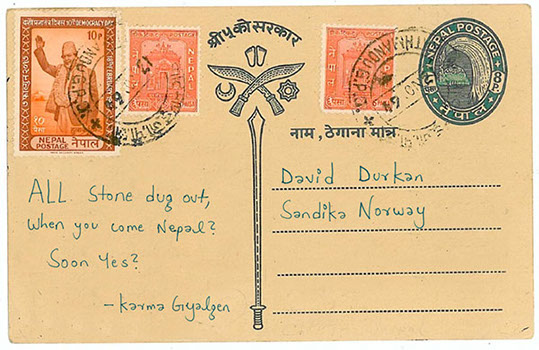 श्री५को सरकार
10P
१० पैसा
NEPAL POSTAGE नेपाल
NEPAL
NEPAL POSTAGE
8P
नेपाल
नाम, ठेगाना मात्र
ALL. Stone dug out,
When you come Nepal?
Soon Yes?
-Karma Gyalzen
David Durkan
Sandika Norway